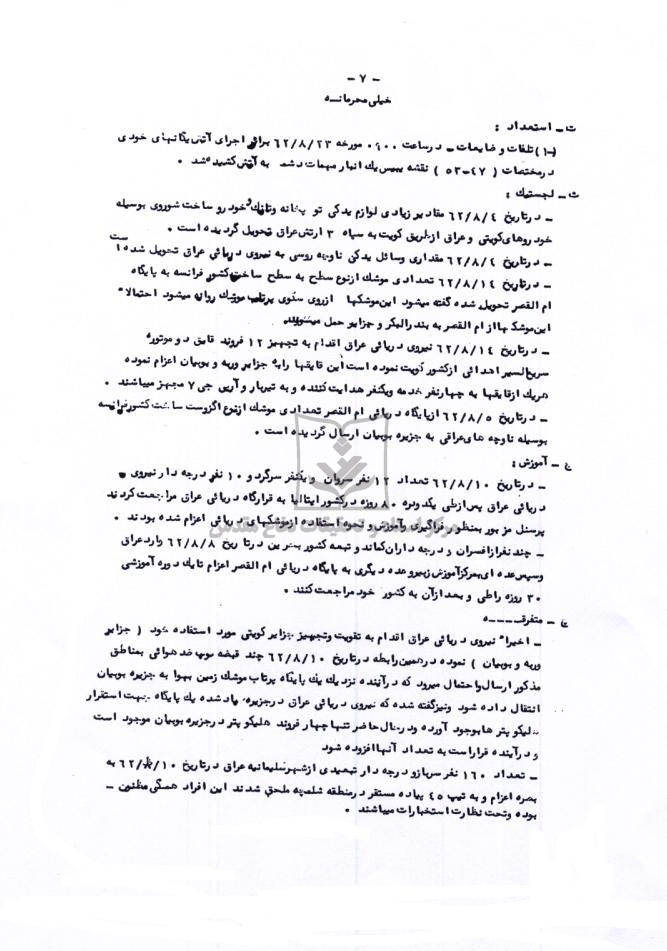 - ۷ -
خیلی محرمانـــه
ت - استعداد :
(-۱) تلفات و ضایعات - در ساعت ۰۹۰۰ مورخه ۶۲/۸/۲۳ براثر اجرای آتش یگانهای خودی
در مختصات ( ۴۷-۵۳ ) نقشه بیس یك انبار مهمات دشمن به آتش کشیده شد .
ث - لجستیك :
- در تاریخ ۶۲/۸/۴ مقادیر زیادی لوازم یدکی توپخانه وتانك و خودرو ساخت شوروی بوسیله
خودروهای کویتی و عراق از طریق کویت به سپاه ۳ ارتش عراق تحویل گردیده است .
- در تاریخ ۶۲/۸/۴ مقداری وسائل یدکی ناوچه روسی به نیروی دریائی عراق تحویل شده است
- در تاریخ ۶۲/۸/۱۴ تعدادی موشك از نوع سطح به سطح ساخت کشور فرانسه به پایگاه
ام القصر تحویل شده گفته میشود این موشکها از روی سکوی پرتاب موشك روانه میشود احتمالا"
این موشکها از ام القصر به بندر البکر و جزایر حمل میشوند
- در تاریخ ۶۲/۸/۱۴ نیروی دریائی عراق اقدام به تجهیز ۱۲ فروند قایق دو موتوره
سریع السیر اهدائی از کشور کویت نموده است این قایقها را به جزایر وربه و بوبیان اعزام نموده
هریك از قایقها به چهار نفر خدمه ویکنفر هدایت کننده و به تیربار و آرپی جی ۷ مجهز میباشند .
- در تاریخ ۶۲/۸/۵ از پایگاه دریائی ام القصر تعدادی موشك از نوع اگزوست ساخت کشور فرانسه
بوسیله ناوچه های عراقی به جزیره بوبیان ارسال گردیده است .
ج - آموزش :
- در تاریخ ۶۲/۸/۱۰ تعداد ۱۲ نفر سروان ویکنفر سرگرد و ۱۰ نفر درجه دار نیروی
دریائی عراق پس از طی یکدوره ۸۰ روزه در کشور ایتالیا به قرارگاه دریائی عراق مراجعت کردند
پرسنل مزبور بمنظور فراگیری و آموزش و نحوه استفاده از موشکهای دریائی اعزام شده بودند .
- چند نفر از افسران و درجه داران کماندو تبعه کشور بحرین در تاریخ ۶۲/۸/۸ وارد عراق
وسپس عده ای بمرکز آموزش زبیر و عده دیگری به پایگاه دریائی ام القصر اعزام تا یك دوره آموزشی
۳۰ روزه را طی و بعد از آن به کشور خود مراجعت کنند .
ج - متفرقــــه
- اخیرا" نیروی دریائی عراق اقدام به تقویت وتجهیز جزایر کویتی مورد استفاده خود ( جزایر
وربه و بوبیان ) نموده در همین رابطه در تاریخ ۶۲/۸/۱۰ چند قبضه توپ ضد هوائی بمناطق
مذکور ارسال واحتمال میرود که در آینده نزدیك یك پایگاه پرتاب موشك زمین بهوا به جزیره بوبیان
انتقال داده شود ونیز گفته شده که نیروی دریائی عراق در جزیره یاد شده یك پایگاه جهت استقرار
هلیکوپترها بوجود آورده و در حال حاضر تنها چهار فروند هلیکوپتر در جزیره بوبیان موجود است
و در آینده قرار است به تعداد آنها افزوده شود
- تعداد ۱۶۰ نفر سرباز و درجه دار تبعیدی از شهر سلیمانیه عراق در تاریخ ۶۲/۸/۱۰ به
بصره اعزام و به تیپ ۴۵ پیاده مستقر در منطقه شلمچه ملحق شدند این افراد همگی مظنون -
بوده وتحت نظارت استخبارات میباشند .